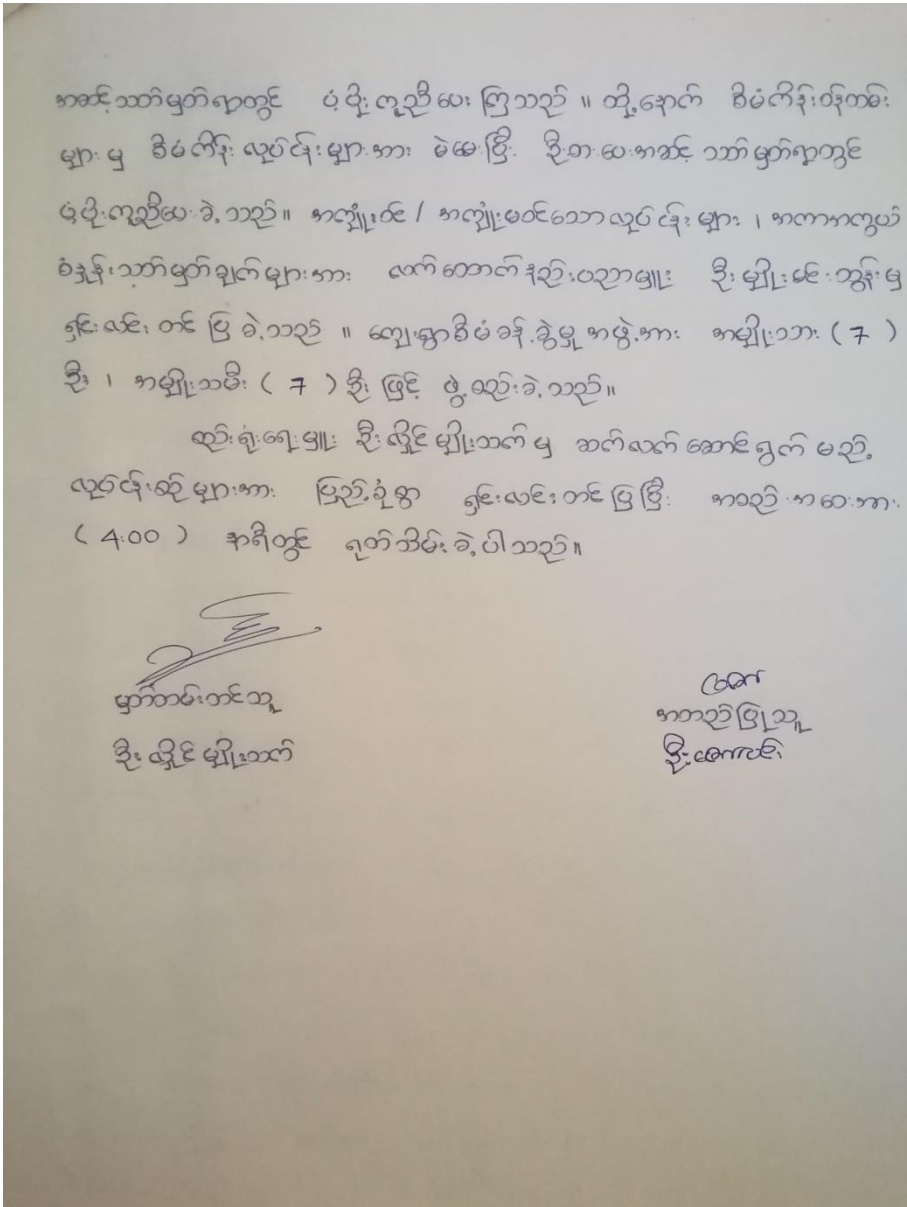 အဆင့်သတ်မှတ်ရာတွင် ပံ့ပိုးကူညီပေးကြသည်။ ထို့နောက် စီမံကိန်းဝန်ထမ်း
များမှ စီမံကိန်းလုပ်ငန်းများအား မဲပေးပြီး ဦးစားပေးအဆင့်သတ်မှတ်ရာတွင်
ပံ့ပိုးကူညီပေးခဲ့သည်။ အကျုံးဝင် / အကျုံးမဝင်သောလုပ်ငန်းများ ၊ အကာအကွယ်
စံနှုန်းသတ်မှတ်ချက်များအား လက်ထောက်နည်းပညာမှူး ဦးမျိုးမင်းထွန်းမှ
ရှင်းလင်းတင်ပြခဲ့သည်။ ကျေးရွာစီမံခန့်ခွဲမှုအဖွဲ့အား အမျိုးသား (7)
ဦး ၊ အမျိုးသမီး (7) ဦးဖြင့် ဖွဲ့စည်းခဲ့သည်။
စည်းရုံးရေးမှူး ဦးလှိုင်မျိုးသက်မှ ဆက်လက်ဆောင်ရွက်မည့်
လုပ်ငန်းစဉ်များအား ပြည့်စုံစွာ ရှင်းလင်းတင်ပြပြီး အစည်းအဝေးအား
(4:00) နာရီတွင် ရုတ်သိမ်းခဲ့ပါသည်။
မှတ်တမ်းတင်သူ
အတည်ပြုသူ
ဦးလှိုင်မျိုးသက်